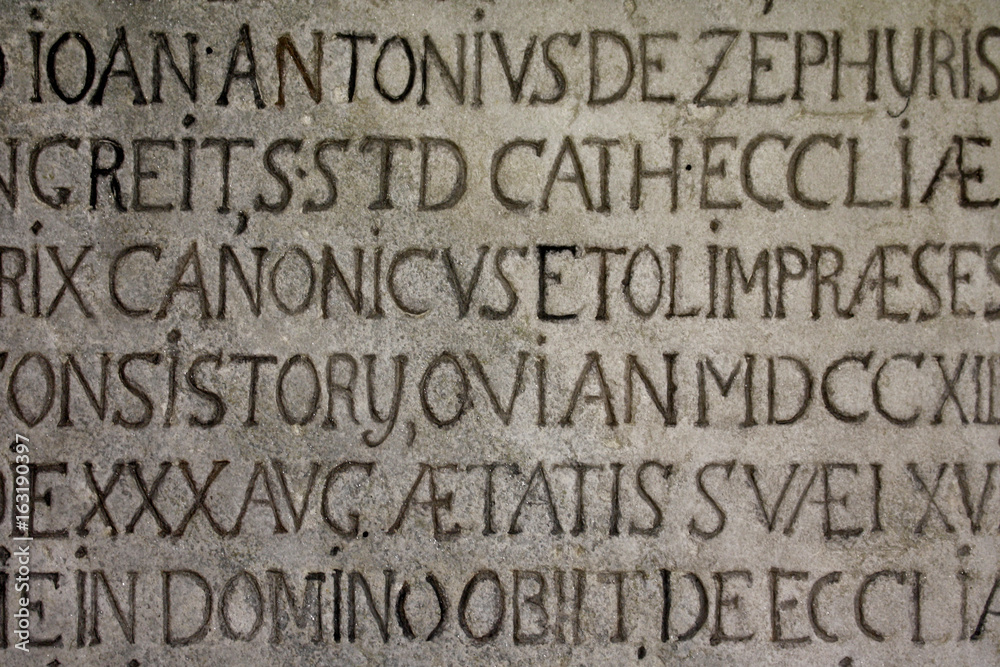 IOAN·ANTONIVS DE ZEPHYRIS
NGREIT, S·S T D CATH·ECCLIÆ
RIX CANONICVS ET OLIM PRÆSES
CONSISTORY, QVI AN MDCCXII
DE XXX AVG. ÆTATIS SVÆ LXV
IE IN DOMINO OBIIT DE ECCLIA
Adobe Stock | #163190397